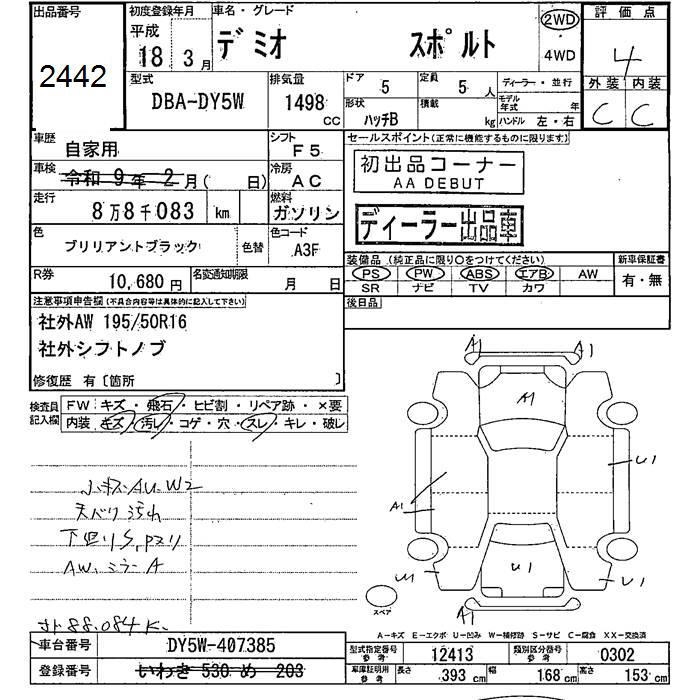 出品番号
2442
初度登録年月
平成
18 3月
車名・グレード
デミオ スポルト
2WD
4WD
評価点
4
外装 内装
C C
型式
DBA-DY5W
排気量
1498
CC
ドア 5
定員 5 人
形状 ハッチB
積載 kg
ディーラー・並行
モデル年式 年
ハンドル 左・右
車歴
自家用
シフト
F5
車検
令和 9年 2月( 日)
冷房
AC
走行
8万8千083 km
燃料
ガソリン
色
ブリリアントブラック
色替
色コード
A3F
R券
10,680円
名変通知期限
月 日
セールスポイント(正常に機能するものに限ります)
初出品コーナー
AA DEBUT
ディーラー出品車
装備品 (純正品に限り○をつけてください)
PS PW ABS エアB AW
SR ナビ TV カワ
新車保証書
有・無
後日品
注意事項申告欄(不具合内容等は具体的に記入して下さい)
社外AW 195/50R16
社外シフトノブ
修復歴 有〔箇所 〕
検査員記入欄
FW キズ・飛石・ヒビ割・リペア跡・×要
内装 キズ・汚レ・コゲ・穴・スレ・キレ・破レ
天バリ汚れ
AW、ミラーA
88.084K
A1 A1
A1
U1
A1
U1
U1
A1
スペア
A-キズ E-エクボ U-凹み W-補修跡 S-サビ C-腐食 XX-交換済
車台番号
DY5W-407385
登録番号
いわき 530 め 203
型式指定番号 参考
12413
類別区分番号 参考
0302
車庫証明用 参考
長さ 393 cm
幅 168 cm
高さ 153 cm